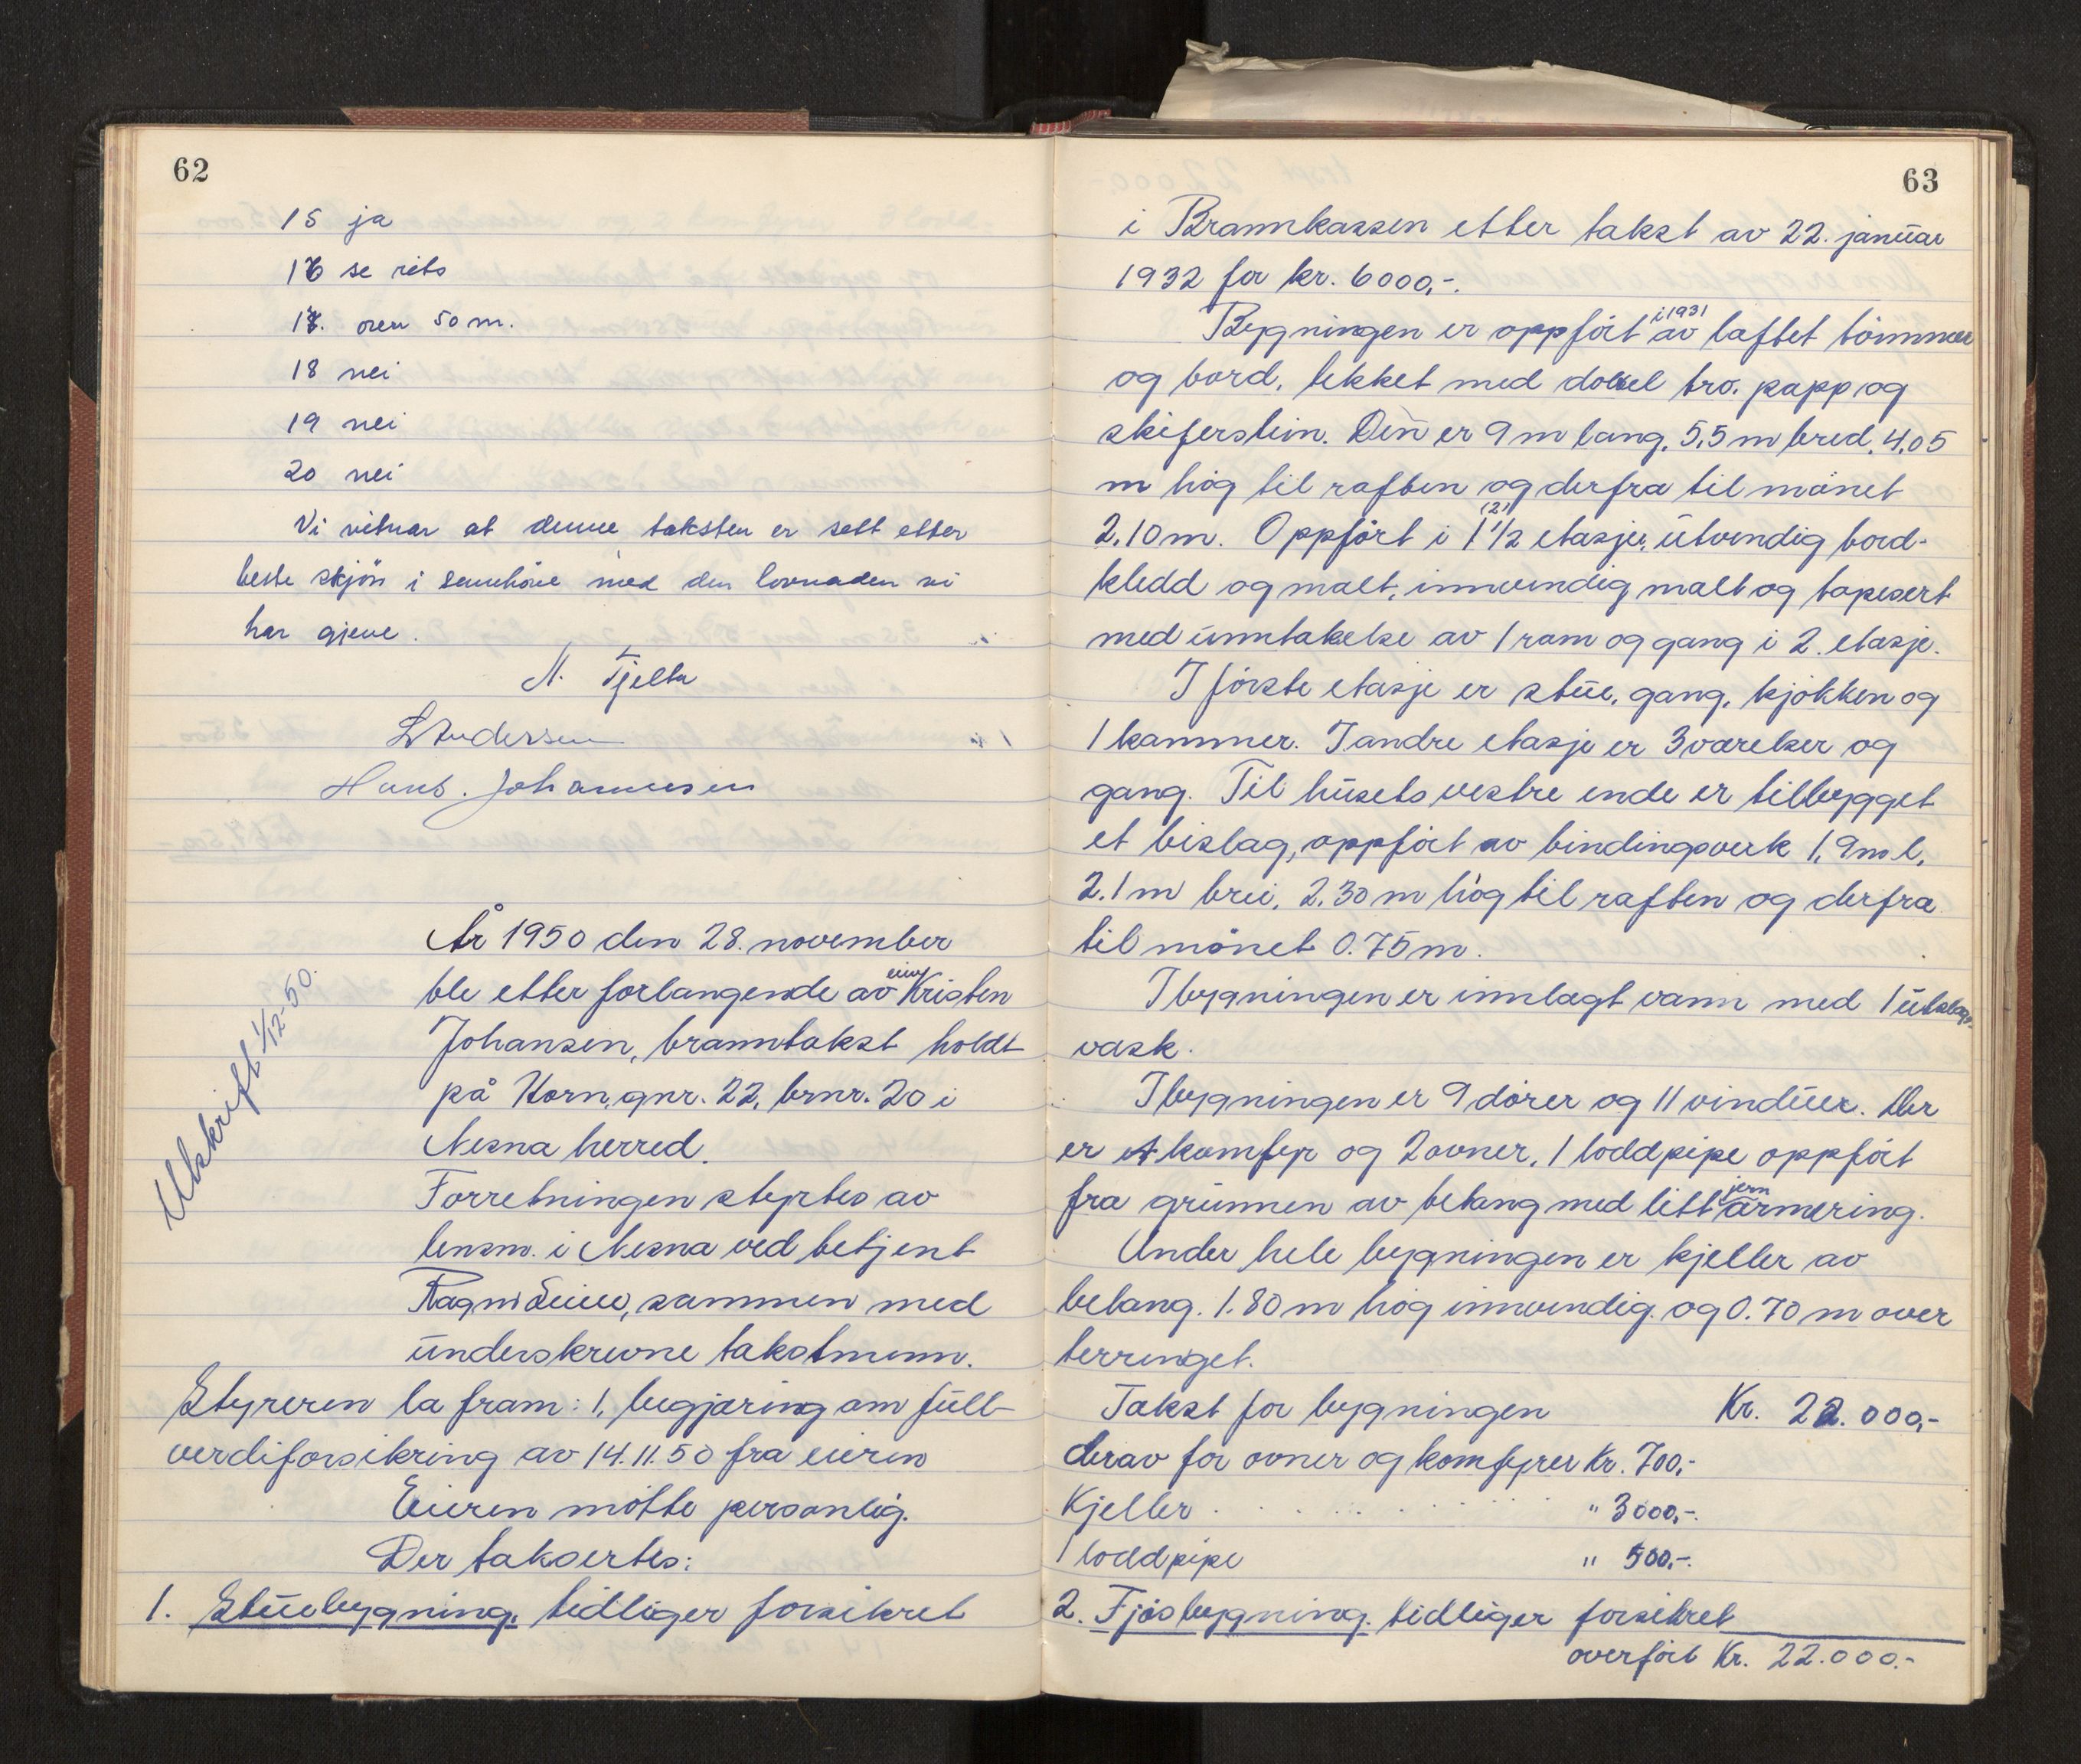 62
15 ja
16 se rits
17. over 50 m.
18 nei
19 nei
20 nei
Vi vitnar at denne taksten er sett etter
beste skjön i semhöve med den lovnaden vi
har gjeve.
N. Tjelta
L Andersen
Hans. Johannesen
År 1950 den 28. november
ble etter forlangende av Kristen
Johansen, branntakst holdt
på Horn, gnr. 22, brnr. 20 i
Nesna herred.
Utskrift 1/12-50.
Forretningen styrtes av
lensm. i Nesna ved betjent
sammen med
underskrevne takstmenn.
Styreren la fram: 1, begjæring om full-
verdiforsikring av 14.11.50 fra eieren
Eieren møtte personlig.
Der taksertes:
1. Stuebygning, tidliger forsikret
63
i Brannkassen etter takst av 22. januar
1932 for kr. 6000,-.
Bygningen er oppført i 1931 av laftet tømmer
og bord, tekket med dobbel tro, papp og
skiferstein. Den er 9 m lang, 5,5 m bred, 4,05
m høg til raften og derfra til mønet
2.10 m. Oppført i 1 1/2 (2) etasjer, utvendig bord-
kledd og malt, innvendig malt og tapesert
med unntakelse av 1 rom og gang i 2. etasje.
I første etasje er stue, gang, kjøkken og
1 kammer. I andre etasje er 3 værelser og
gang. Til husets vestre ende er tilbygget
et bislag, oppført av bindingsverk 1,9 m l,
2.1 m brei, 2.30 m høg til raften og derfra
til mønet 0.75 m.
I bygningen er innlagt vann med 1 utslags-
vask.
I bygningen er 9 dører og 11 vinduer. Der
er komfyr og 2 ovner, 1 loddpipe oppført
fra grunnen av betong med litt jern armering.
Under hele bygningen er kjeller av
betong. 1.80 m høg innvendig og 0.70 m over
terrenget.
Takst for bygningen Kr. 22.000,-
derav for ovner og komfyrer Kr. 700,-
Kjeller " 3000,-.
1 loddpipe " 500,-.
2. Fjøsbygning, tidliger forsikret
overført Kr. 22.000.-